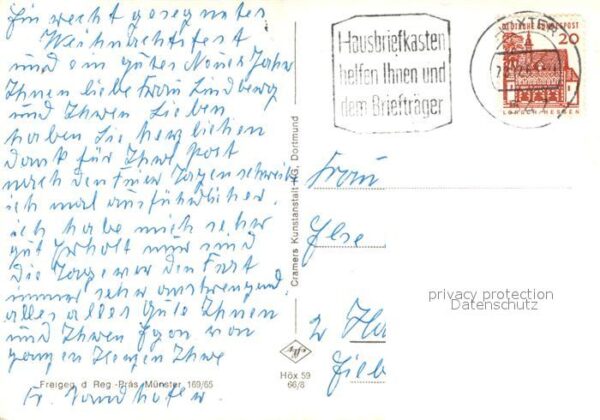 Ein recht gesegnetes
Weihnachtsfest
und ein gutes Neues Jahr
Ihnen liebe Frau Lindberg
und Ihren Lieben
haben Sie herzlichen
Dank für Ihre Post
nach den Feier Tagen schreibe
ich mal ausführlicher.
ich habe mich sehr
gut erholt nur sind
die Tage vor dem Fest
immer sehr anstrengend.
alles alles Gute Ihnen
und Ihren Egon von
ganzen Herzen Ihre
Fr.
Freigeg. d. Reg.-Präs. Münster 169/65
Cramers Kunstanstalt KG, Dortmund
Höx 59
66/8
Hausbriefkasten
helfen Ihnen und
dem Briefträger
HÖXTER
DEUTSCHE BUNDESPOST
20
LORSCH/HESSEN
Frau
Else
2 Ha
Fieb
privacy protection
Datenschutz